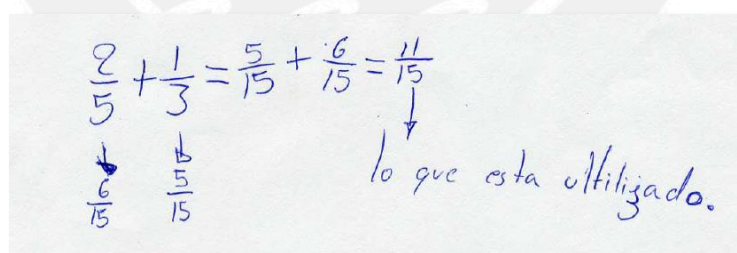 2/5 + 1/3 = 5/15 + 6/15 = 11/15
↓ ↓ ↓
6/15 5/15 lo que esta ultiligado.